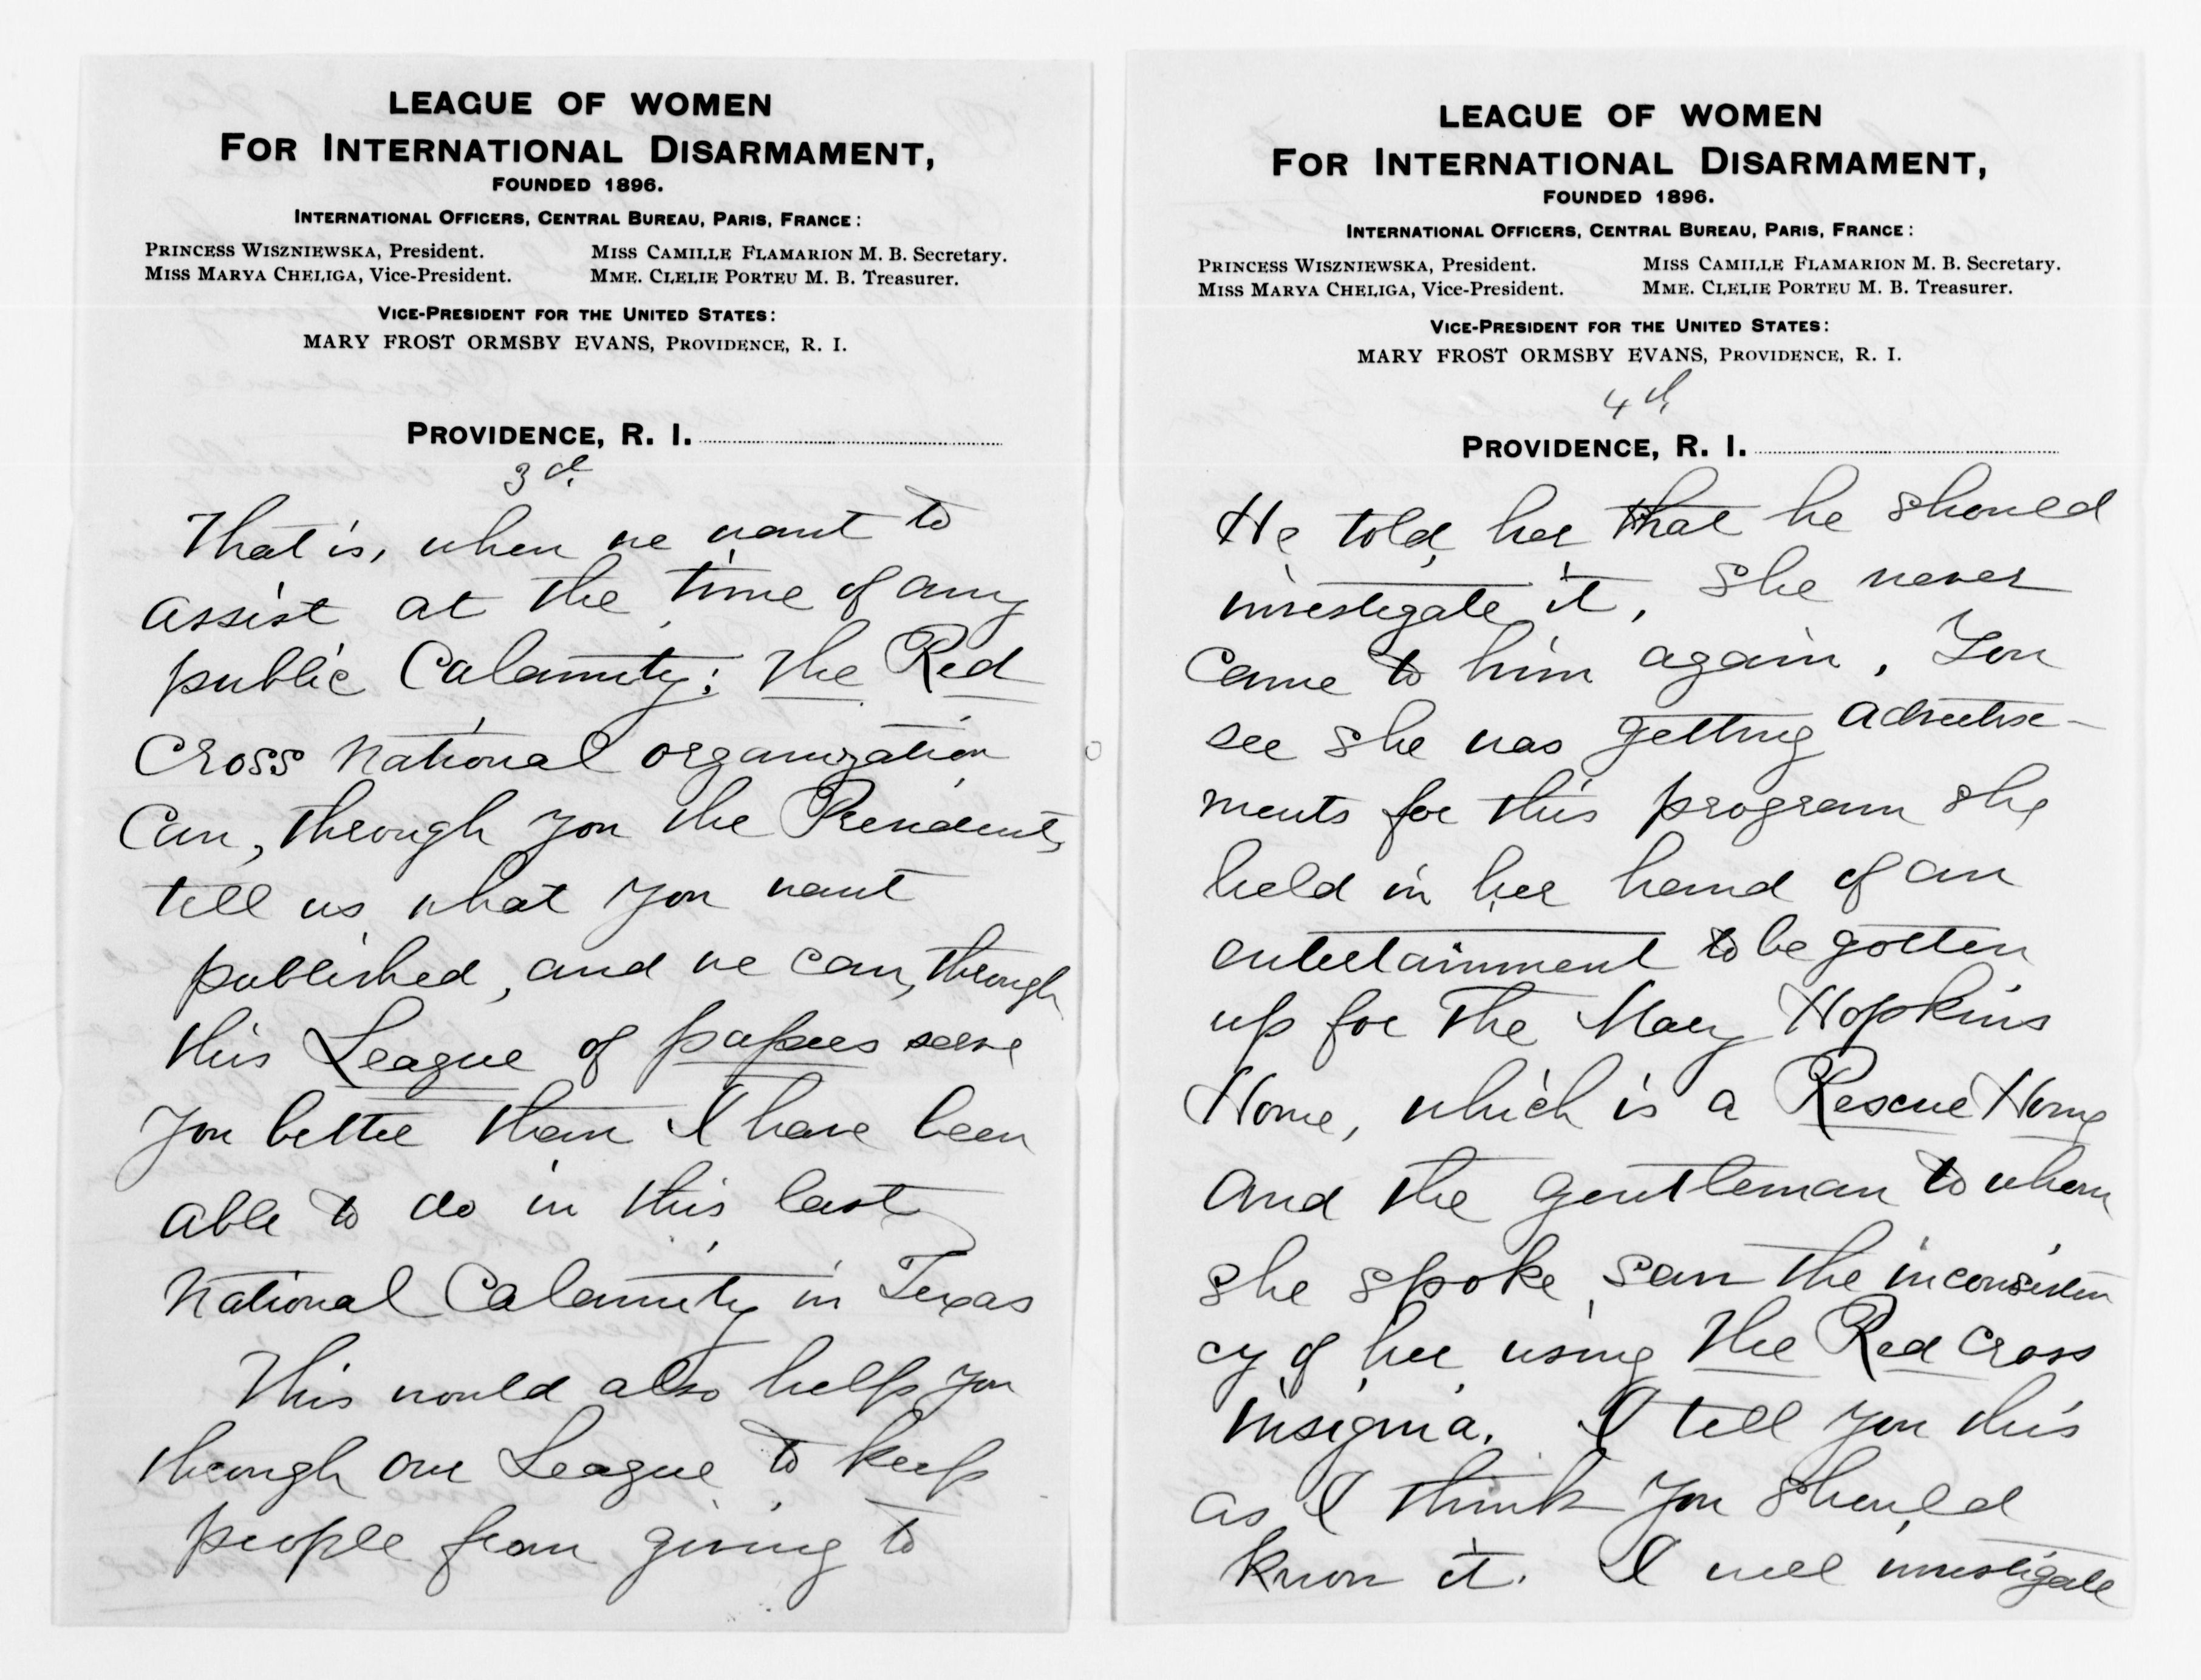 LEAGUE OF WOMEN
FOR INTERNATIONAL DISARMAMENT,
FOUNDED 1896.
INTERNATIONAL OFFICERS, CENTRAL BUREAU, PARIS, FRANCE:
PRINCESS WISZNIEWSKA, President. MISS CAMILLE FLAMARION M. B. Secretary.
MISS MARYA CHELIGA, Vice-President. MME. CLELIE PORTEU M. B. Treasurer.
VICE-PRESIDENT FOR THE UNITED STATES:
MARY FROST ORMSBY EVANS, PROVIDENCE, R. I.
PROVIDENCE, R. I.
3d.
That is, when we want to
assist at the time of any
public Calamity; the Red
Cross National organization
Can, through you the President,
tell us what you want
published, and we can, through
this League of papers serve
you better than I have been
able to do in this last
National Calamity in Texas
This would also help you
through our League to keep
people from giving to
LEAGUE OF WOMEN
FOR INTERNATIONAL DISARMAMENT,
FOUNDED 1896.
INTERNATIONAL OFFICERS, CENTRAL BUREAU, PARIS, FRANCE:
PRINCESS WISZNIEWSKA, President. MISS CAMILLE FLAMARION M. B. Secretary.
MISS MARYA CHELIGA, Vice-President. MME. CLELIE PORTEU M. B. Treasurer.
VICE-PRESIDENT FOR THE UNITED STATES:
MARY FROST ORMSBY EVANS, PROVIDENCE, R. I.
4th
PROVIDENCE, R. I.
He told her that he should
investigate it, She never
Came to him again. You
see she was getting advertise-
ments for this program she
held in her hand of an
entertainment to be gotten
up for The Mary Hopkins
Home, which is a Rescue Home
And the gentleman to whom
she spoke saw the inconsisten
cy of her using the Red Cross
insignia. I tell you this
as I think you should
know it. I will investigate